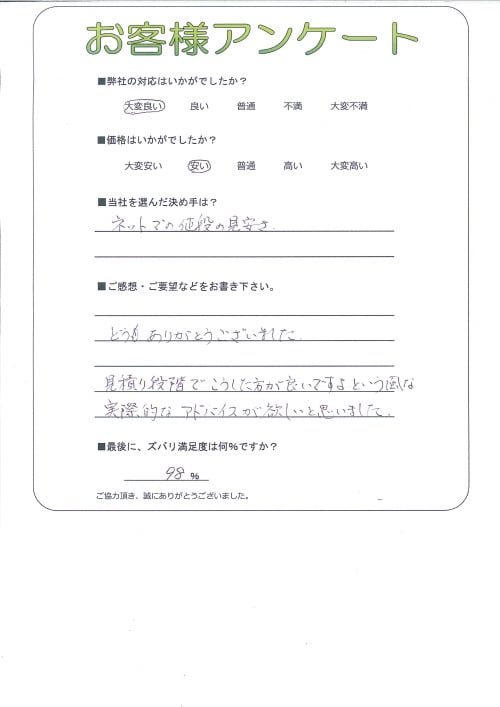 お客様アンケート
■弊社の対応はいかがでしたか?
大変良い 良い 普通 不満 大変不満
■価格はいかがでしたか?
大変安い 安い 普通 高い 大変高い
■当社を選んだ決め手は?
ネットでの値段の見安さ
■ご感想・ご要望などをお書き下さい。
どうもありがとうございました。
見積り役階でこうした方が良いですよという風な
実際的なアドバイスが欲しいと思いました。
■最後に、ズバリ満足度は何%ですか?
98 %
ご協力頂き、誠にありがとうございました。